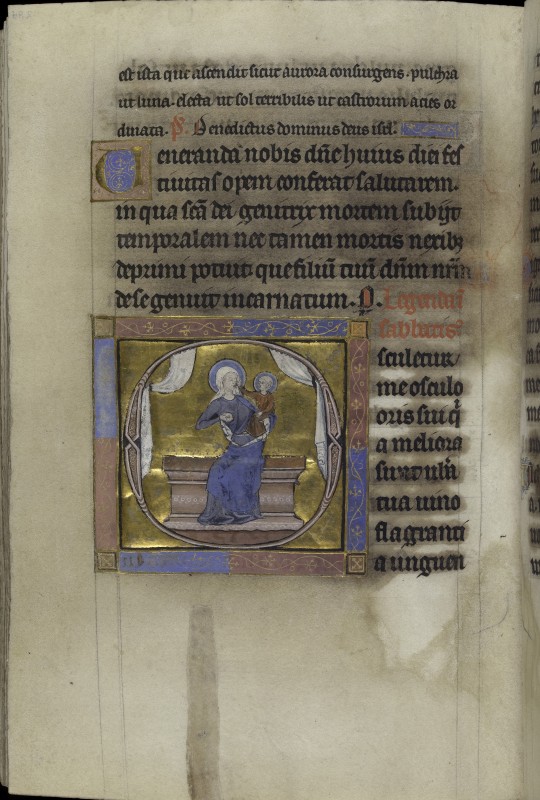 est ista que ascendit sicut aurora consurgens. pulchra
ut luna. electa. ut sol terribilis ut castrorum acies or
dinata. P. Benedictus dominus deus isrl.
Veneranda nobis dñe huius diei fes
tiuitas opem conferat salutarem.
in qua scã dei genitrix mortem subijt
temporalem nec tamen mortis nexibꝫ
deprimi potuit. que filiũ tuũ dñm nr̃m
de se genuit incarnatum. P.
sabbatis
Osculetur
me osculo
oris sui q̃
a meliora
sunt ub̃a
tua uino
flagranti
a unguen